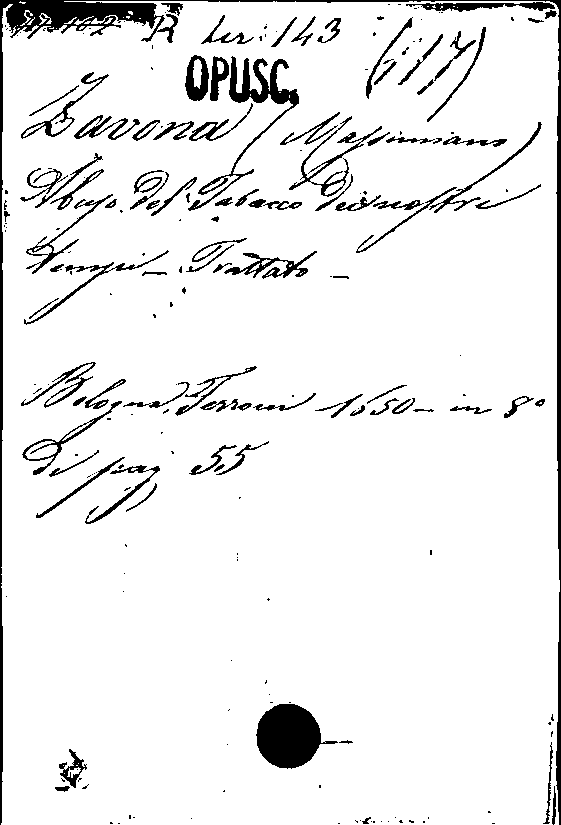 77.102 R ser: 143 (117)
OPUSC.
Zavona (Massimiano)
Abuso del Tabacco dei nostri
tempi – Trattato –
Bologna, Ferroni 1650 – in 8°
di pag 55